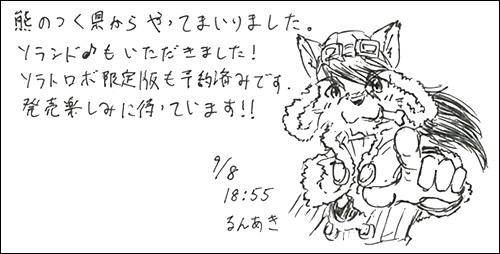 熊のつく県からやってまいりました。
ソランド♪もいただきました!
ソラトロボ限定版も予約済みです.
発売楽しみに待っています!!
9/8
18:55
るんあき